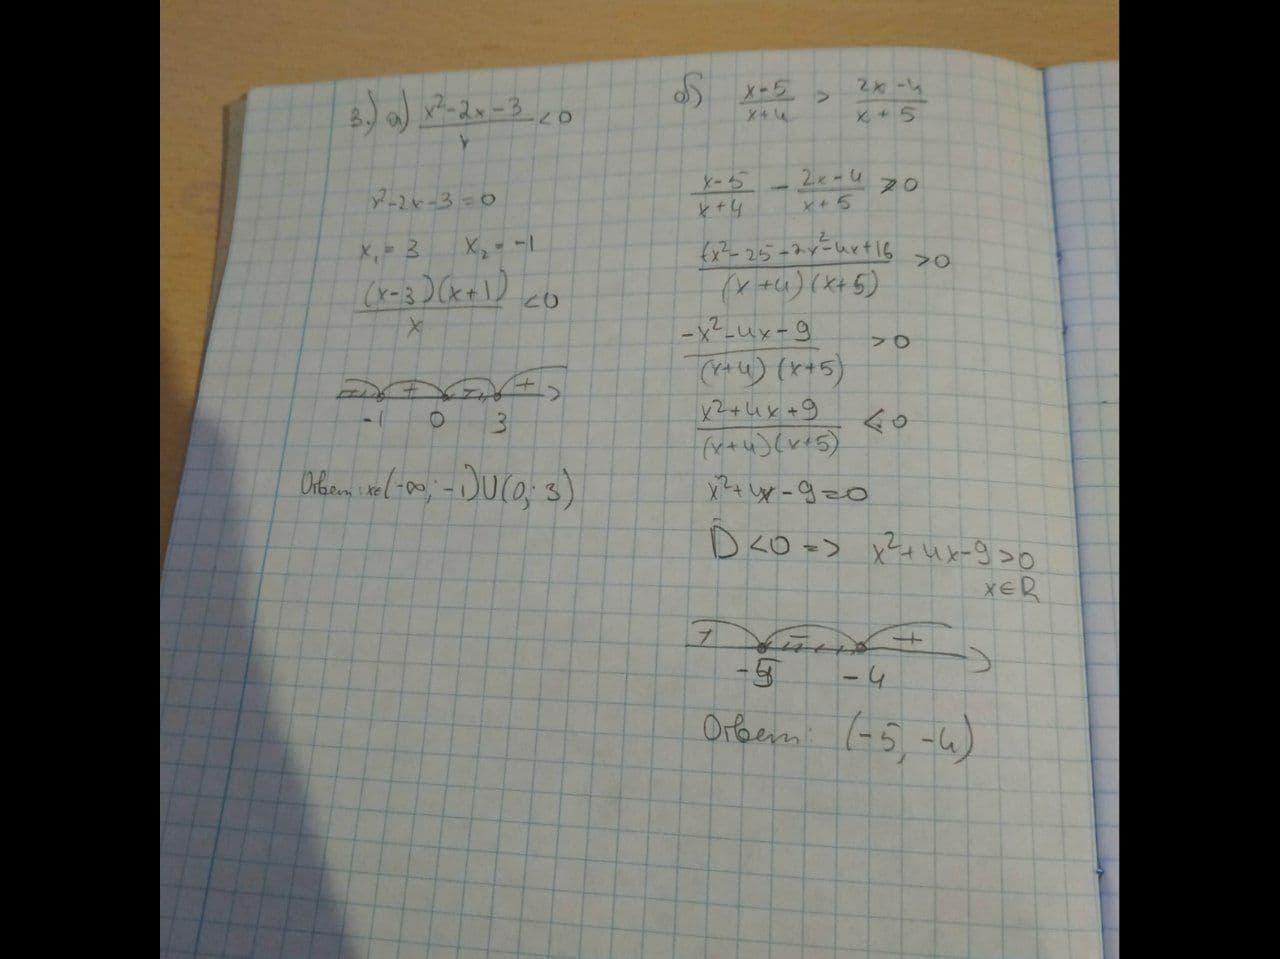 3.) а) (x²-2x-3)/x < 0
x²-2x-3=0
x₁=3 x₂=-1
(x-3)(x+1)/x < 0
- + - +
-1 0 3
Ответ: x∈(-∞; -1)∪(0; 3)
б) (x-5)/(x+4) > (2x-4)/(x+5)
(x-5)/(x+4) - (2x-4)/(x+5) > 0
(x²-25-2x²-4x+16)/((x+4)(x+5)) > 0
(-x²-4x-9)/((x+4)(x+5)) > 0
(x²+4x+9)/((x+4)(x+5)) < 0
x²+4x-9=0
D<0 => x²+4x-9>0
x∈R
+ - +
-5 -4
Ответ: (-5, -4)